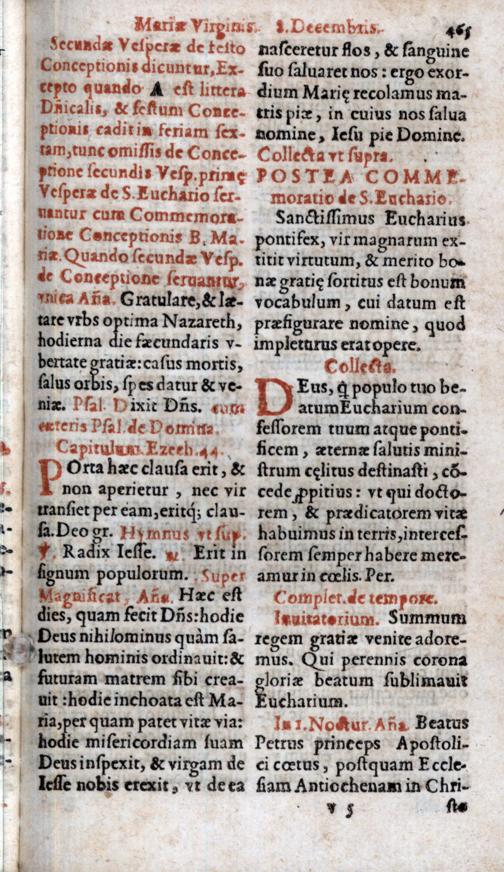 Mariæ Virginis. 8. Decembris. 465
Secundæ Vesperæ de festo
Conceptionis dicuntur, Ex-
cepto quando A est littera
Dñicalis, & festum Conce-
ptionis cadit in feriam sex-
tam, tunc omissis de Conce-
ptione secundis Vesp. primę
Vesperæ de S. Euchario ser-
uantur cum Commemora-
tione Conceptionis B. Ma-
riæ. Quando secundæ Vesp.
de Conceptione seruantur,
vnica Aña. Gratulare, & læ-
tare vrbs optima Nazareth,
hodierna die fæcundaris v-
bertate gratiæ: casus mortis,
salus orbis, spes datur & ve-
niæ. Psal. Dixit Dñs. cum
cæteris Psal. de Domina.
Capitulum. Ezech. 44.
POrta hæc clausa erit, &
non aperietur, nec vir
transiet per eam, eritq; clau-
sa. Deo gr. Hymnus vt sup.
℣. Radix Iesse. ℟. Erit in
signum populorum. Super
Magnificat, Aña. Hæc est
dies, quam fecit Dñs: hodie
Deus nihilominus quàm sa-
lutem hominis ordinauit: &
futuram matrem sibi crea-
uit: hodie inchoata est Ma-
ria, per quam patet vitæ via:
hodie misericordiam suam
Deus inspexit, & virgam de
Iesse nobis erexit, vt de ea
nasceretur flos, & sanguine
suo saluaret nos: ergo exor-
dium Marię recolamus ma-
tris piæ, in cuius nos salua
nomine, Iesu pie Domine.
Collecta vt supra.
POSTEA COMME-
moratio de S. Euchario.
Sanctissimus Eucharius
pontifex, vir magnarum ex-
titit virtutum, & merito bo-
næ gratię sortitus est bonum
vocabulum, cui datum est
præfigurare nomine, quod
impleturus erat opere.
Collecta.
DEus, q̃ populo tuo be-
atum Eucharium con-
fessorem tuum atque ponti-
ficem, æternæ salutis mini-
strum cęlitus destinasti, cõ-
cede ꝓpitius: vt qui docto-
rem, & prædicatorem vitæ
habuimus in terris, interces-
sorem semper habere mere-
amur in cœlis. Per.
Complet. de tempore.
Inuitatorium. Summum
regem gratiæ venite adore-
mus. Qui perennis corona
gloriæ beatum sublimauit
Eucharium.
In 1. Noctur. Aña Beatus
Petrus princeps Apostoli-
ci cœtus, postquam Eccle-
siam Antiochenam in Chri-
v 5 sto